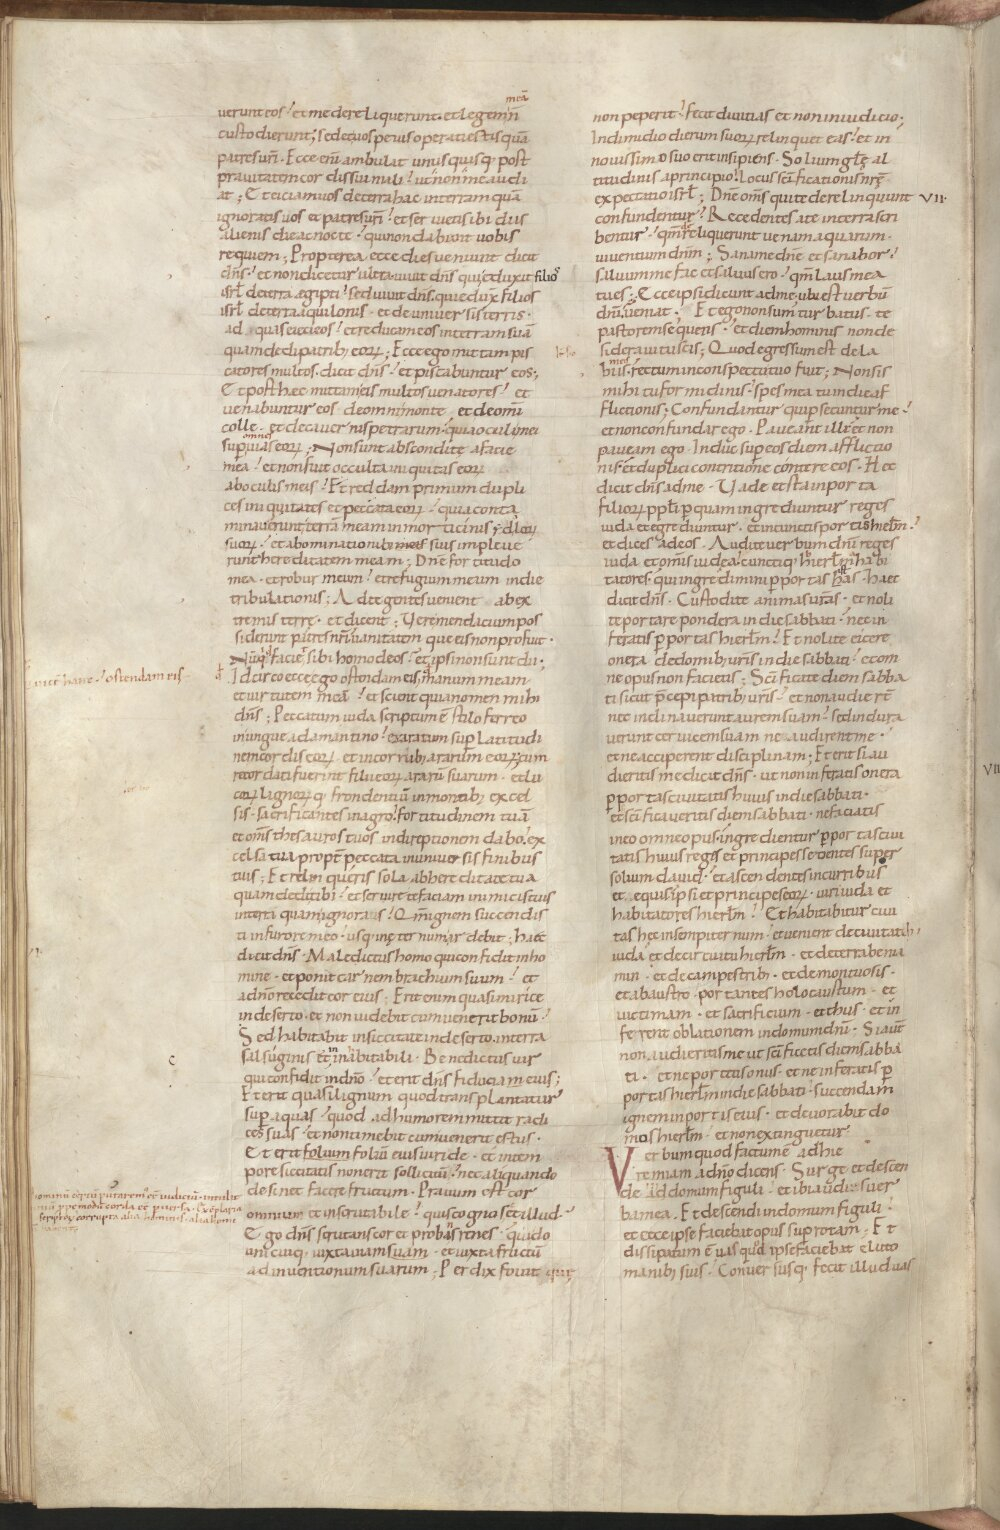 meā
uerunt eos! et me dereliquerunt. et legem n̄
custodierunt; sed et uos peius operati estis quā
patres ur̄i. Ecce eni ambulat unusquisq; post
prauitatem cordis sui mali! ut non me audi
at; Et eiciam uos de terra hac in terram quā
ignoratis uos et patres ur̄i! et seruietis ibi diis
alienis die ac nocte. qui non dabunt uobis
requiem; Propterea ecce dies ueniunt dicit
dn̄s. et non dicetur ultra uiuit dn̄s qui eduxit filios
isrl̄ de terra aegipti! sed uiuit dn̄s. qui edux̄ filios
isrl̄ de terra aquilonis. et de uniuersis terris.
ad quas eieci eos! et reducam eos in terram suā
quam dedi patrib; eorꝝ; Ecce ego mittam pis
catores multos. dicit dn̄s. et piscabuntur eos;
Et post haec mittam eis multos uenatores! et
uenabuntur eos de omni monte. et de omi
colle. et de cauernis petrarum. quia oculi mei
omnes
sup uias eorꝝ; Non sunt absconditę a facie
mea! et non fuit occulta iniquitas eorꝝ
ab oculis meis! Et reddam primum dupli
ces iniquitates et peccata eorꝝ. quia conta
minauerunt terrā meam in morticinis idolorꝝ
suorꝝ. et abominationib; suis impleue
runt hereditatem meam; Dn̄e fortitudo
mea. et robur meum! et refugium meum in die
tribulationis; Ad te gentes uenient ab ex
tremis terrę. et dicent; Uere mendacium pos
siderunt patres nr̄i uanitatem que eis non profuit.
Nūquid faciet sibi homo deos! et ipsi non sunt dii;
Idcirco ecce ego ostendam eis manum meam
et uirtutem meā! et scient quia nomen mihi
dn̄s; Peccatum iuda scriptum ē stilo ferreo
in ungue adamantino! exaratum sup latitudi
nem cordis eorꝝ. et in cornib; ararum eorꝝ cum
recordati fuerint filii eorꝝ ararū suarum. et lu
corꝝ lignorꝝ q; frondentiū in montib; excel
sis. sacrificantes in agro! fortitudinem tuā
et om̄s thesauros tuos in direptionem dabo. ex
celsa tua propt̄ peccata in uniuersis finibus
tuis; Et relinq̄ueris sola ab hereditate tua
quam dedi tibi! et seruire te faciam inimicis tuis
in terra quam ignoras! Qm̄ ignem succendis
ti in furore meo! usq; in ęternum ardebit; haec
dicit dn̄s. Maledictus homo qui confidit in ho
mine. et ponit carnem brachium suum! et
a dn̄o recedit cor eius; Erit enim quasi mirice
in deserto. et non uidebit cum uenerit bonū!
Sed habitabit in siccitate in deserto. in terra
salsuginis et inhabitabili. Benedictus uir
qui confidit in dn̄o! et erit dn̄s fiducia eius;
Et erit quasi lignum quod transplantatur
sup aquas! quod ad humorem mittit radi
ces suas. et non timebit cum uenerit estus.
Et erit folium foliū eius uiride. et in tem
pore siccitatis non erit sollicitū! nec aliquando
desinet facere fructum. Prauum est cor
omnium et inscrutabile! quis cognoscet illud.
Ego dn̄s scrutans cor et probans renes! qui do
unicuiq; iuxta uiam suam. et iuxta fructū
adinuentionum suarum; Perdix fouit quę
uice hanc! ostendam eis
non peperit! fecit diuitias et non in iudicio.
In dimidio dierum suorꝝ relinquet eas! et in
nouissimo suo erit insipiens. Solium glę al
titudinis a principio! locus sc̄ificationis nr̄ę.
expectatio isrl̄; Dn̄e om̄s qui te derelinquunt
VII.
confundentur! Recedentes a te in terra scri
bentur. qm̄ dereliquerunt uenam aquarum.
uiuentium dn̄m; Sana me dn̄e et sanabor!
saluum me fac et saluus ero. qm̄ laus mea
tu es; Ecce ipsi dicunt ad me. ubi est uerbū
dn̄i. ueniat. Et ego non sum turbatus. te
pastorem sequens. et diem hominis non de
sideraui tu scis; Quod egressum est de la
meis
biis. rectum in conspectu tuo fuit; Non sis
mihi tu formidini. spes mea tu in die af
flictionis; Confundantur qui psecuntur me.
et non confundar ego. Paueant illi! et non
paueam ego. Induc sup eos diem afflictio
nis! et duplici contritione contere eos. Hec
dicit dn̄s ad me. Uade et sta in porta
filiorꝝ ppl̄i. p quam ingrediuntur reges
iuda et egrediuntur. et in cunctis portis hierl̄m!
et dices ad eos. Audite uerbum dn̄i reges
iuda. et omis iudea! cunctiq; habi
tatores. qui ingredimini p portas has. haec
dicit dn̄s. Custodite animas ur̄as. et noli
te portare pondera in die sabbati. nec in
feratis p portas hierl̄m! Et nolite eicere
onera de domib; ur̄is in die sabbati. et om
ne opus non facietis; Sc̄ificate diem sabba
ti sicut p̄cepi patrib; ur̄is! et non audier̄
nec inclinauerunt aurem suam! sed indura
uerunt ceruicem suam ne audirent me.
et ne acciperent disciplinam; Et erit si au
dieritis me dicit dn̄s. ut non inferatis onera
p portas ciuitatis huius in die sabbati.
et sc̄ificaueritis diem sabbati. ne faciatis
in eo omne opus. ingredientur p portas ciui
tatis huius reges et principes sedentes super
solium dauid. et ascendentes in curribus
et equis ipsi et principes eorꝝ. uiri iuda et
habitatores hierl̄m! Et habitabitur ciui
tas hęc in sempiternum. et uenient de ciuitatib;
iuda et de circuitu hierl̄m. et de terra benia
min. et de campestrib;. et de montuosis.
et ab austro. portantes holocaustum. et
uictimam. et sacrificium. et thus. et in
ferent oblationem in domum dn̄i. Si aut̄
non audieritis me ut sc̄ificetis diem sabba
ti. et ne portetis onus. et ne inferatis p
portas hierl̄m in die sabbati. succendam
ignem in portis eius. et deuorabit do
mos hierl̄m. et non extinguetur.
Verbum quod factum ē ad hie
remiam a dn̄o dicens. Surge et descen
de in domum figuli. et ibi audies uer
ba mea. Et descendi in domum figuli!
et ecce ipse faciebat opus sup rotam. Et
dissipatum ē uas quod ipse faciebat e luto
manib; suis. Conuersusq; fecit illud uas